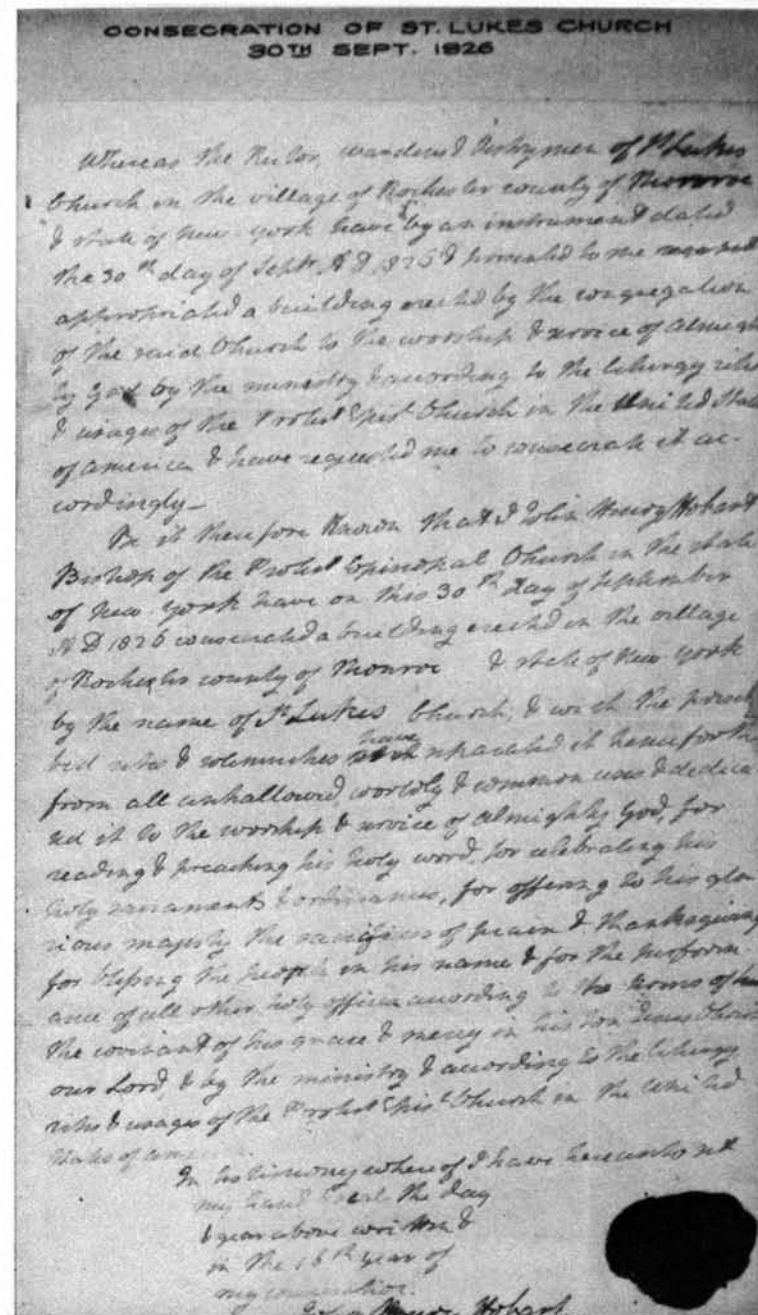 CONSECRATION OF ST. LUKES CHURCH
30TH SEPT. 1826
Whereas the Rector, wardens & Vestrymen of St Lukes
Church in the village of Rochester county of Monroe
& state of New-York have by an instrument dated
the 30th day of Septr. A D 1826 presented to me
appropriated a building erected by the congregation
of the said Church to the worship & service of Almigh
ty God by the ministry & according to the liturgy rites
& usages of the Protest Epis Church in the United States
of America & have requested me to consecrate it ac-
cordingly—
Be it therefore Known that I John Henry Hobart
Bishop of the Protest Episcopal Church in the state
of New-York have on this 30th day of September
A D 1826 consecrated a building erected in the village
of Rochester county of Monroe & state of New York
by the name of St Lukes Church, & with the prescri
bed rites & solemnities have separated it henceforth
from all unhallowed, worldly & common uses & dedica
ted it to the worship & service of Almighty God, for
reading & preaching his holy word, for celebrating his
holy sacraments & ordinances, for offering to his glo
rious majesty the sacrifices of praise & thanksgiving
for blessing the people in his name & for the perform-
ance of all other holy offices according to the terms of
the covenant of his grace & mercy in his Son Jesus Christ
our Lord, & by the ministry & according to the liturgy
rites & usages of the Protest Epis Church in the United
States of America
In testimony whereof I have hereunto set
my hand & seal the day
& year above written &
in the 16th year of
my consecration.
John Henry Hobart